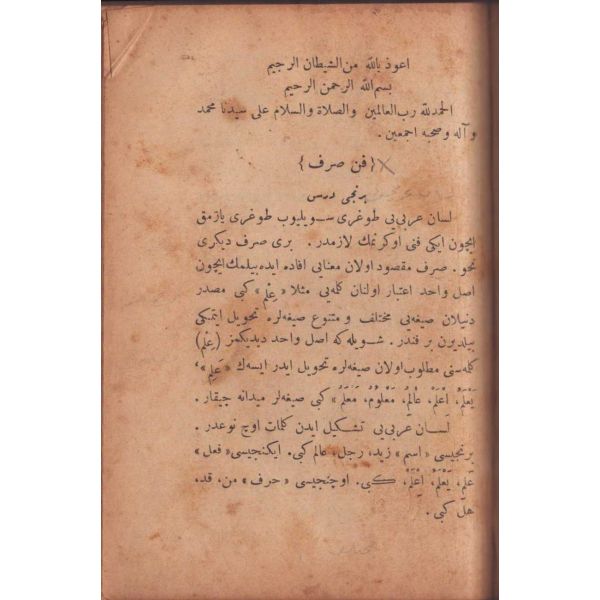 اعوذ بالله من الشيطان الرجيم
بسم الله الرحمن الرحيم
الحمد لله رب العالمين والصلاة والسلام على سيدنا محمد
و آله و صحبه اجمعين .
{ فن صرف }
برنجى درس
لسان عربى يى طوغرى سويليوب طوغرى يازمق
ايچون ايكى فنى اوكرنمك لازمدر . برى صرف ديكرى
نحو . صرف مقصود اولان معنايى افاده ايده بيلمك ايچون
اصل واحد اعتبار اولنان كله يى مثلا « عِلْم » كبى مصدر
دنيلان صيغه يى مختلف و متنوع صيغه لره تحويل ايتمكى
بيلديرن بر فندر . شويله كه اصل واحد ديديكمز (عِلْم)
كله سنى مطلوب اولان صيغه لره تحويل ايدر ايسه ك « عَلِمَ »،
يَعْلَمُ، اِعْلَمْ، عَالِمٌ، مَعْلُومٌ، مَعْلَمٌ » كبى صيغه لر ميدانه چيقار .
لسان عربى يى تشكيل ايدن كلمات اوچ نوعدر .
برنجيسى « اسم » زيد، رجل، عالم كبى. ايكنجيسى « فعل »
عَلِمَ، يَعْلَمُ، اِعْلَمْ، كبى. اوچنجيسى « حرف » من، قد،
هل كبى .